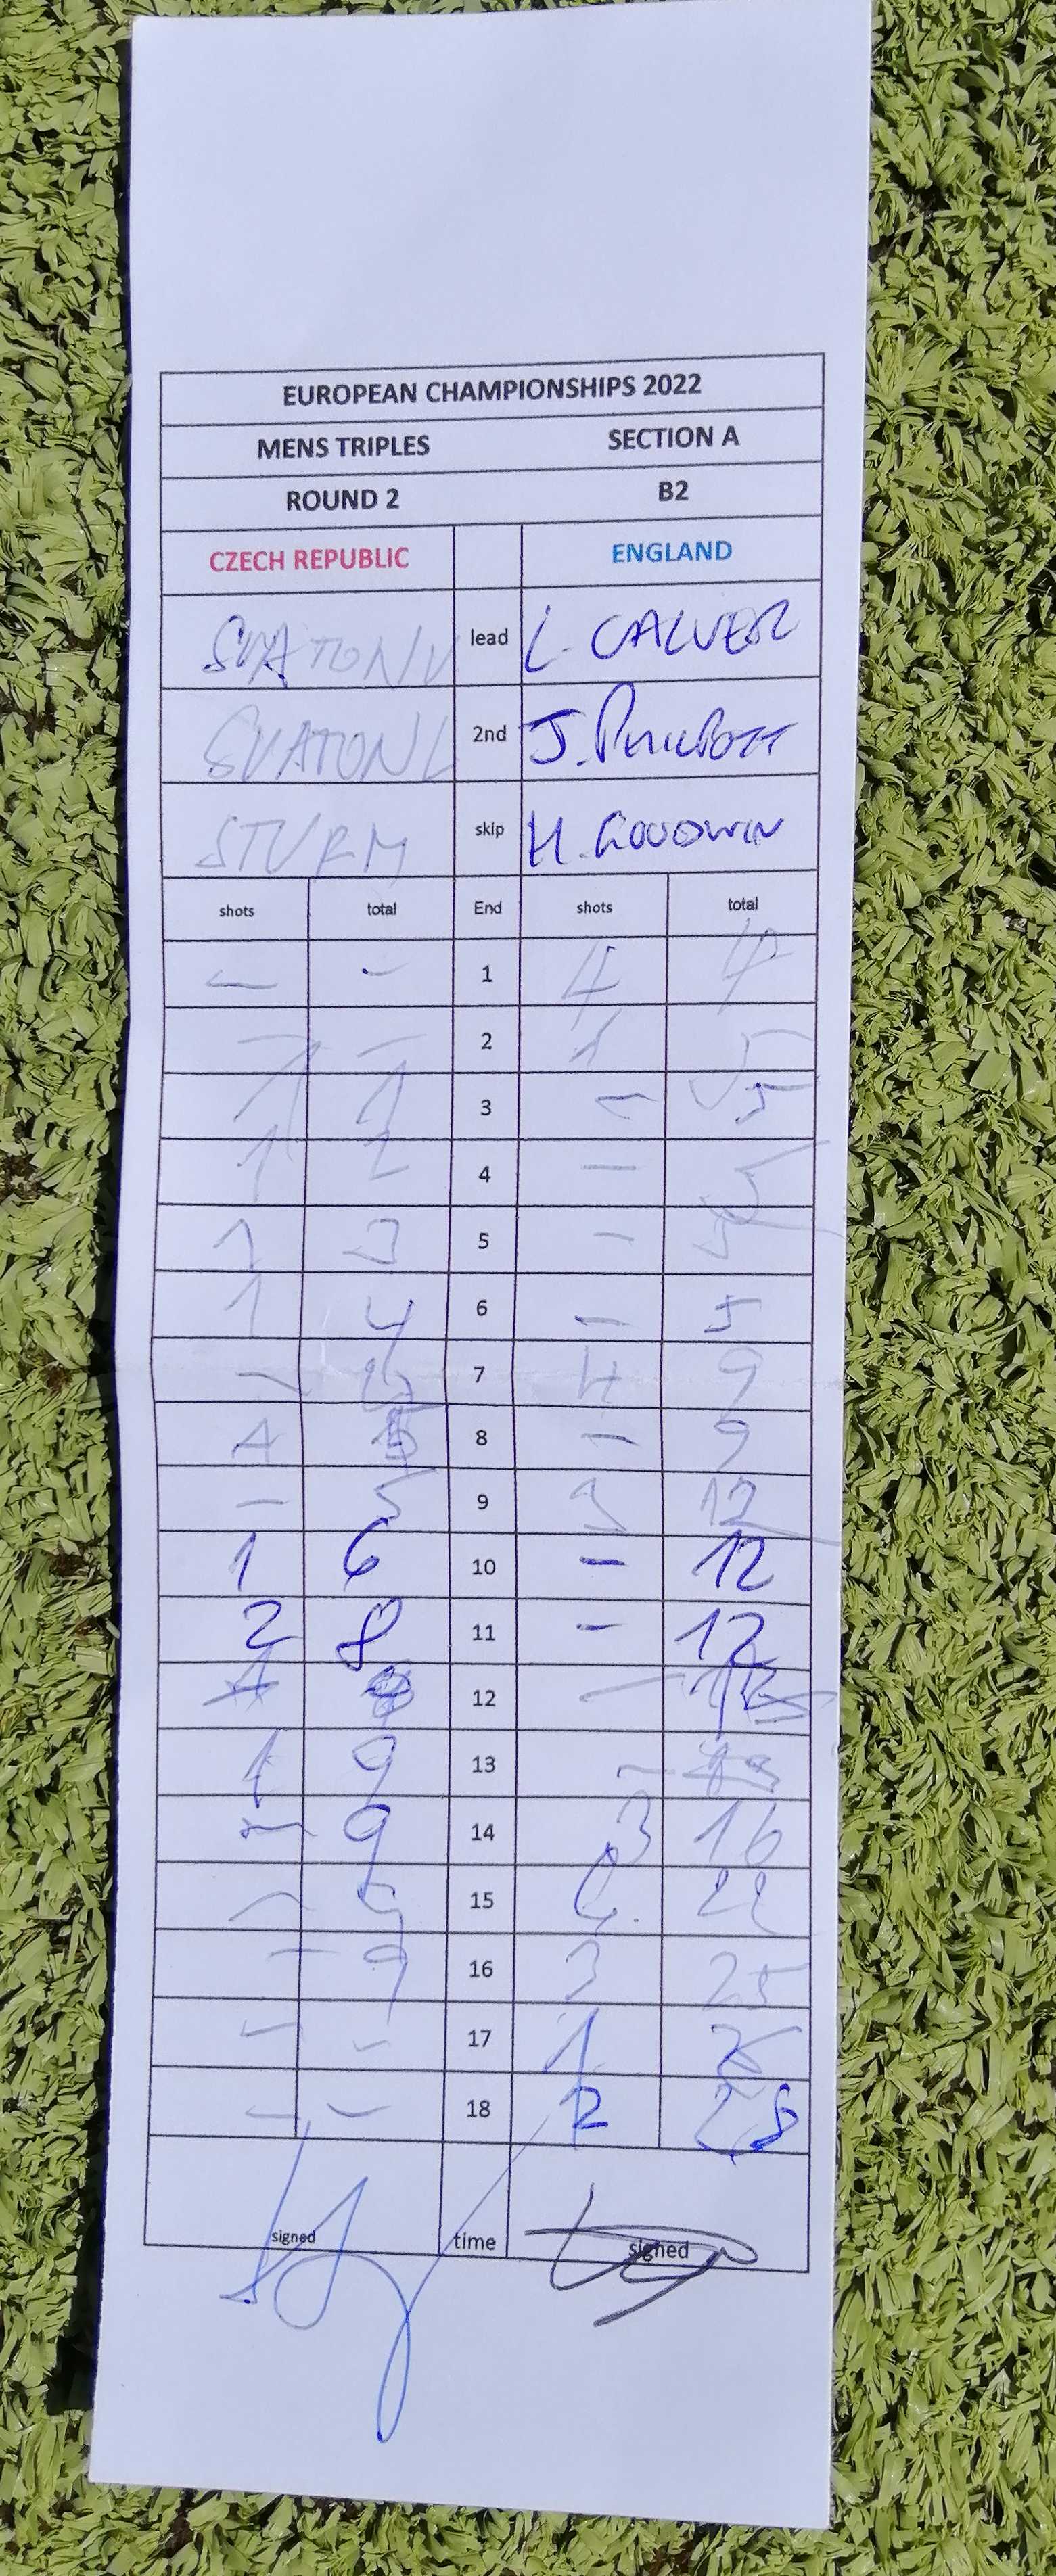 EUROPEAN CHAMPIONSHIPS 2022
MENS TRIPLES SECTION A
ROUND 2 B2
CZECH REPUBLIC ENGLAND
SVATON lead L. CALVER
SVATON 2nd J. PHILPOTT
STURM skip H. GOODWIN
shots total End shots total
- - 1 4 4
- - 2 1 5
1 1 3 - 5
1 2 4 - 5
1 3 5 - 5
1 4 6 - 5
- 4 7 4 9
1 5 8 - 9
- 5 9 3 12
1 6 10 - 12
2 8 11 - 12
12 -
1 9 13 -
- 9 14 3 16
- 9 15 22
- 9 16 3 25
- - 17 1 26
- - 18 2 28
signed time signed